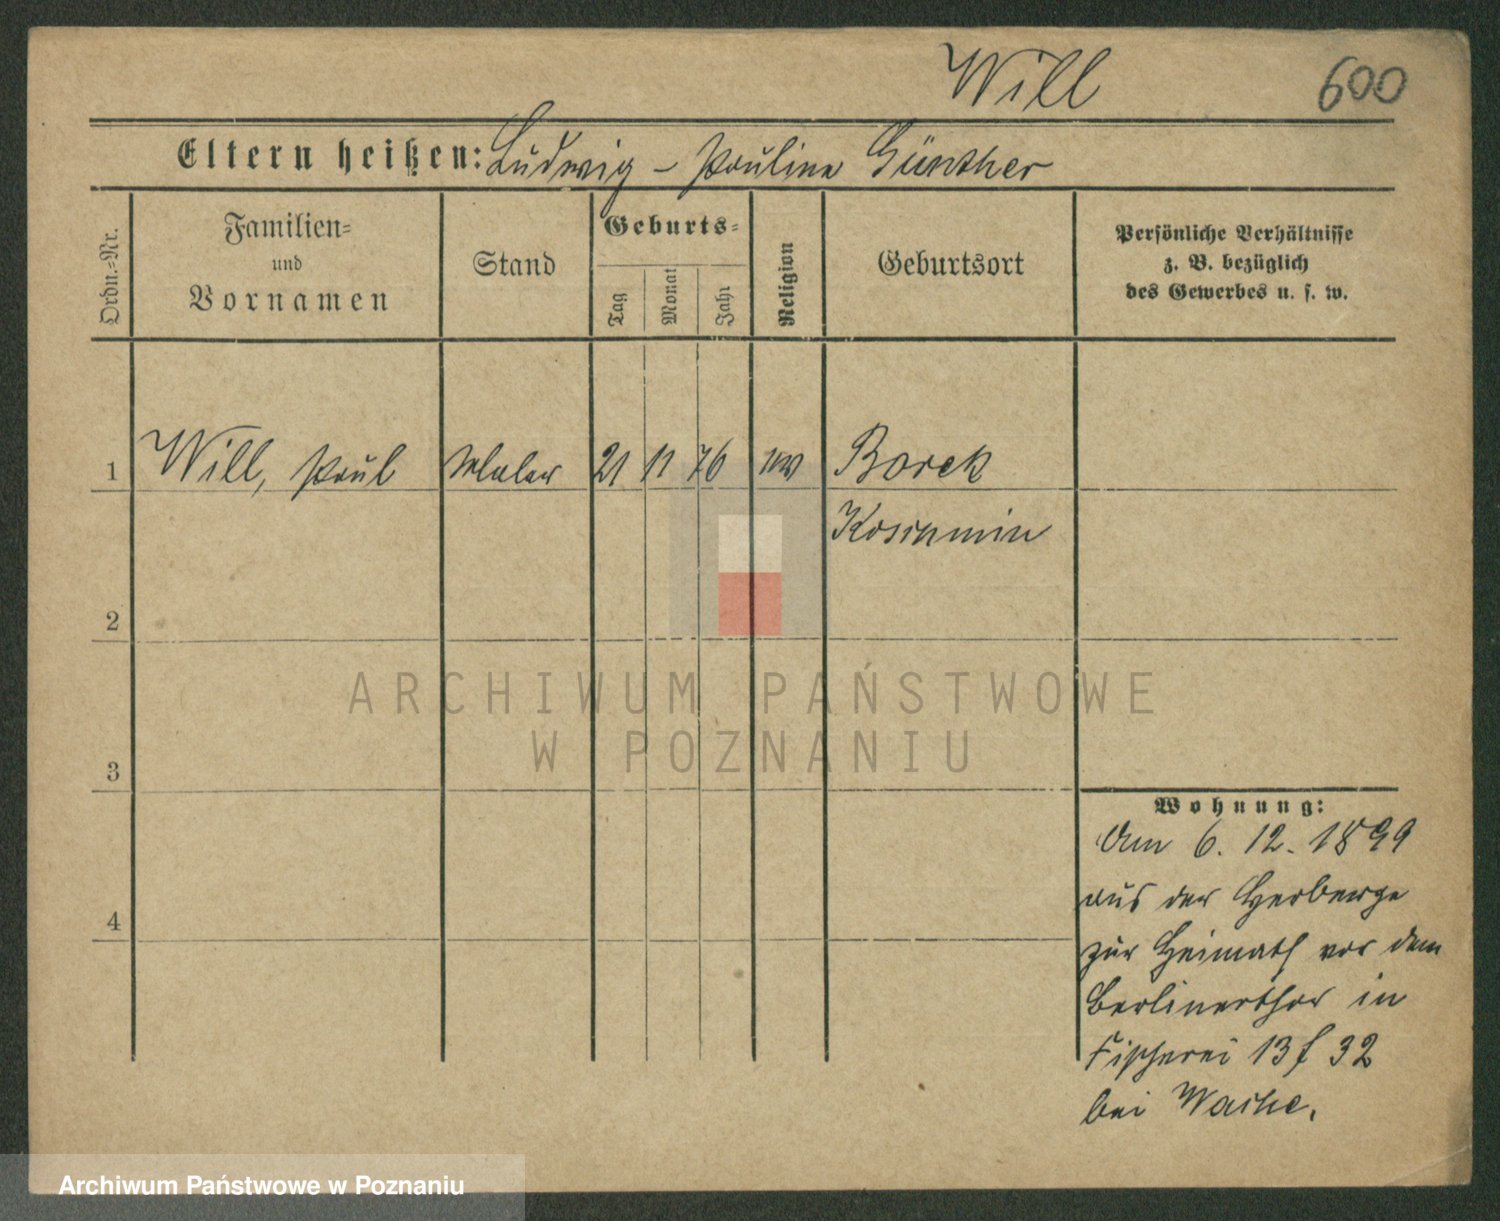 Will 600
Eltern heißen: Ludwig – Pauline Günther
Ordn.=Nr.
Familien=
und
Vornamen
Stand
Geburts=
Tag
Monat
Jahr
Religion
Geburtsort
Persönliche Verhältnisse
z. B. bezüglich
des Gewerbes u. s. w.
1 Will, Paul Maler 21 11 76 ev Borek
Koschmin
2
3
4
Wohnung:
Am 6. 12. 1899
aus der Herberge
zur Heimath vor dem
Berlinerthor in
Fischerei 13 f 32
bei
ARCHIWUM PAŃSTWOWE
W POZNANIU
Archiwum Państwowe w Poznaniu